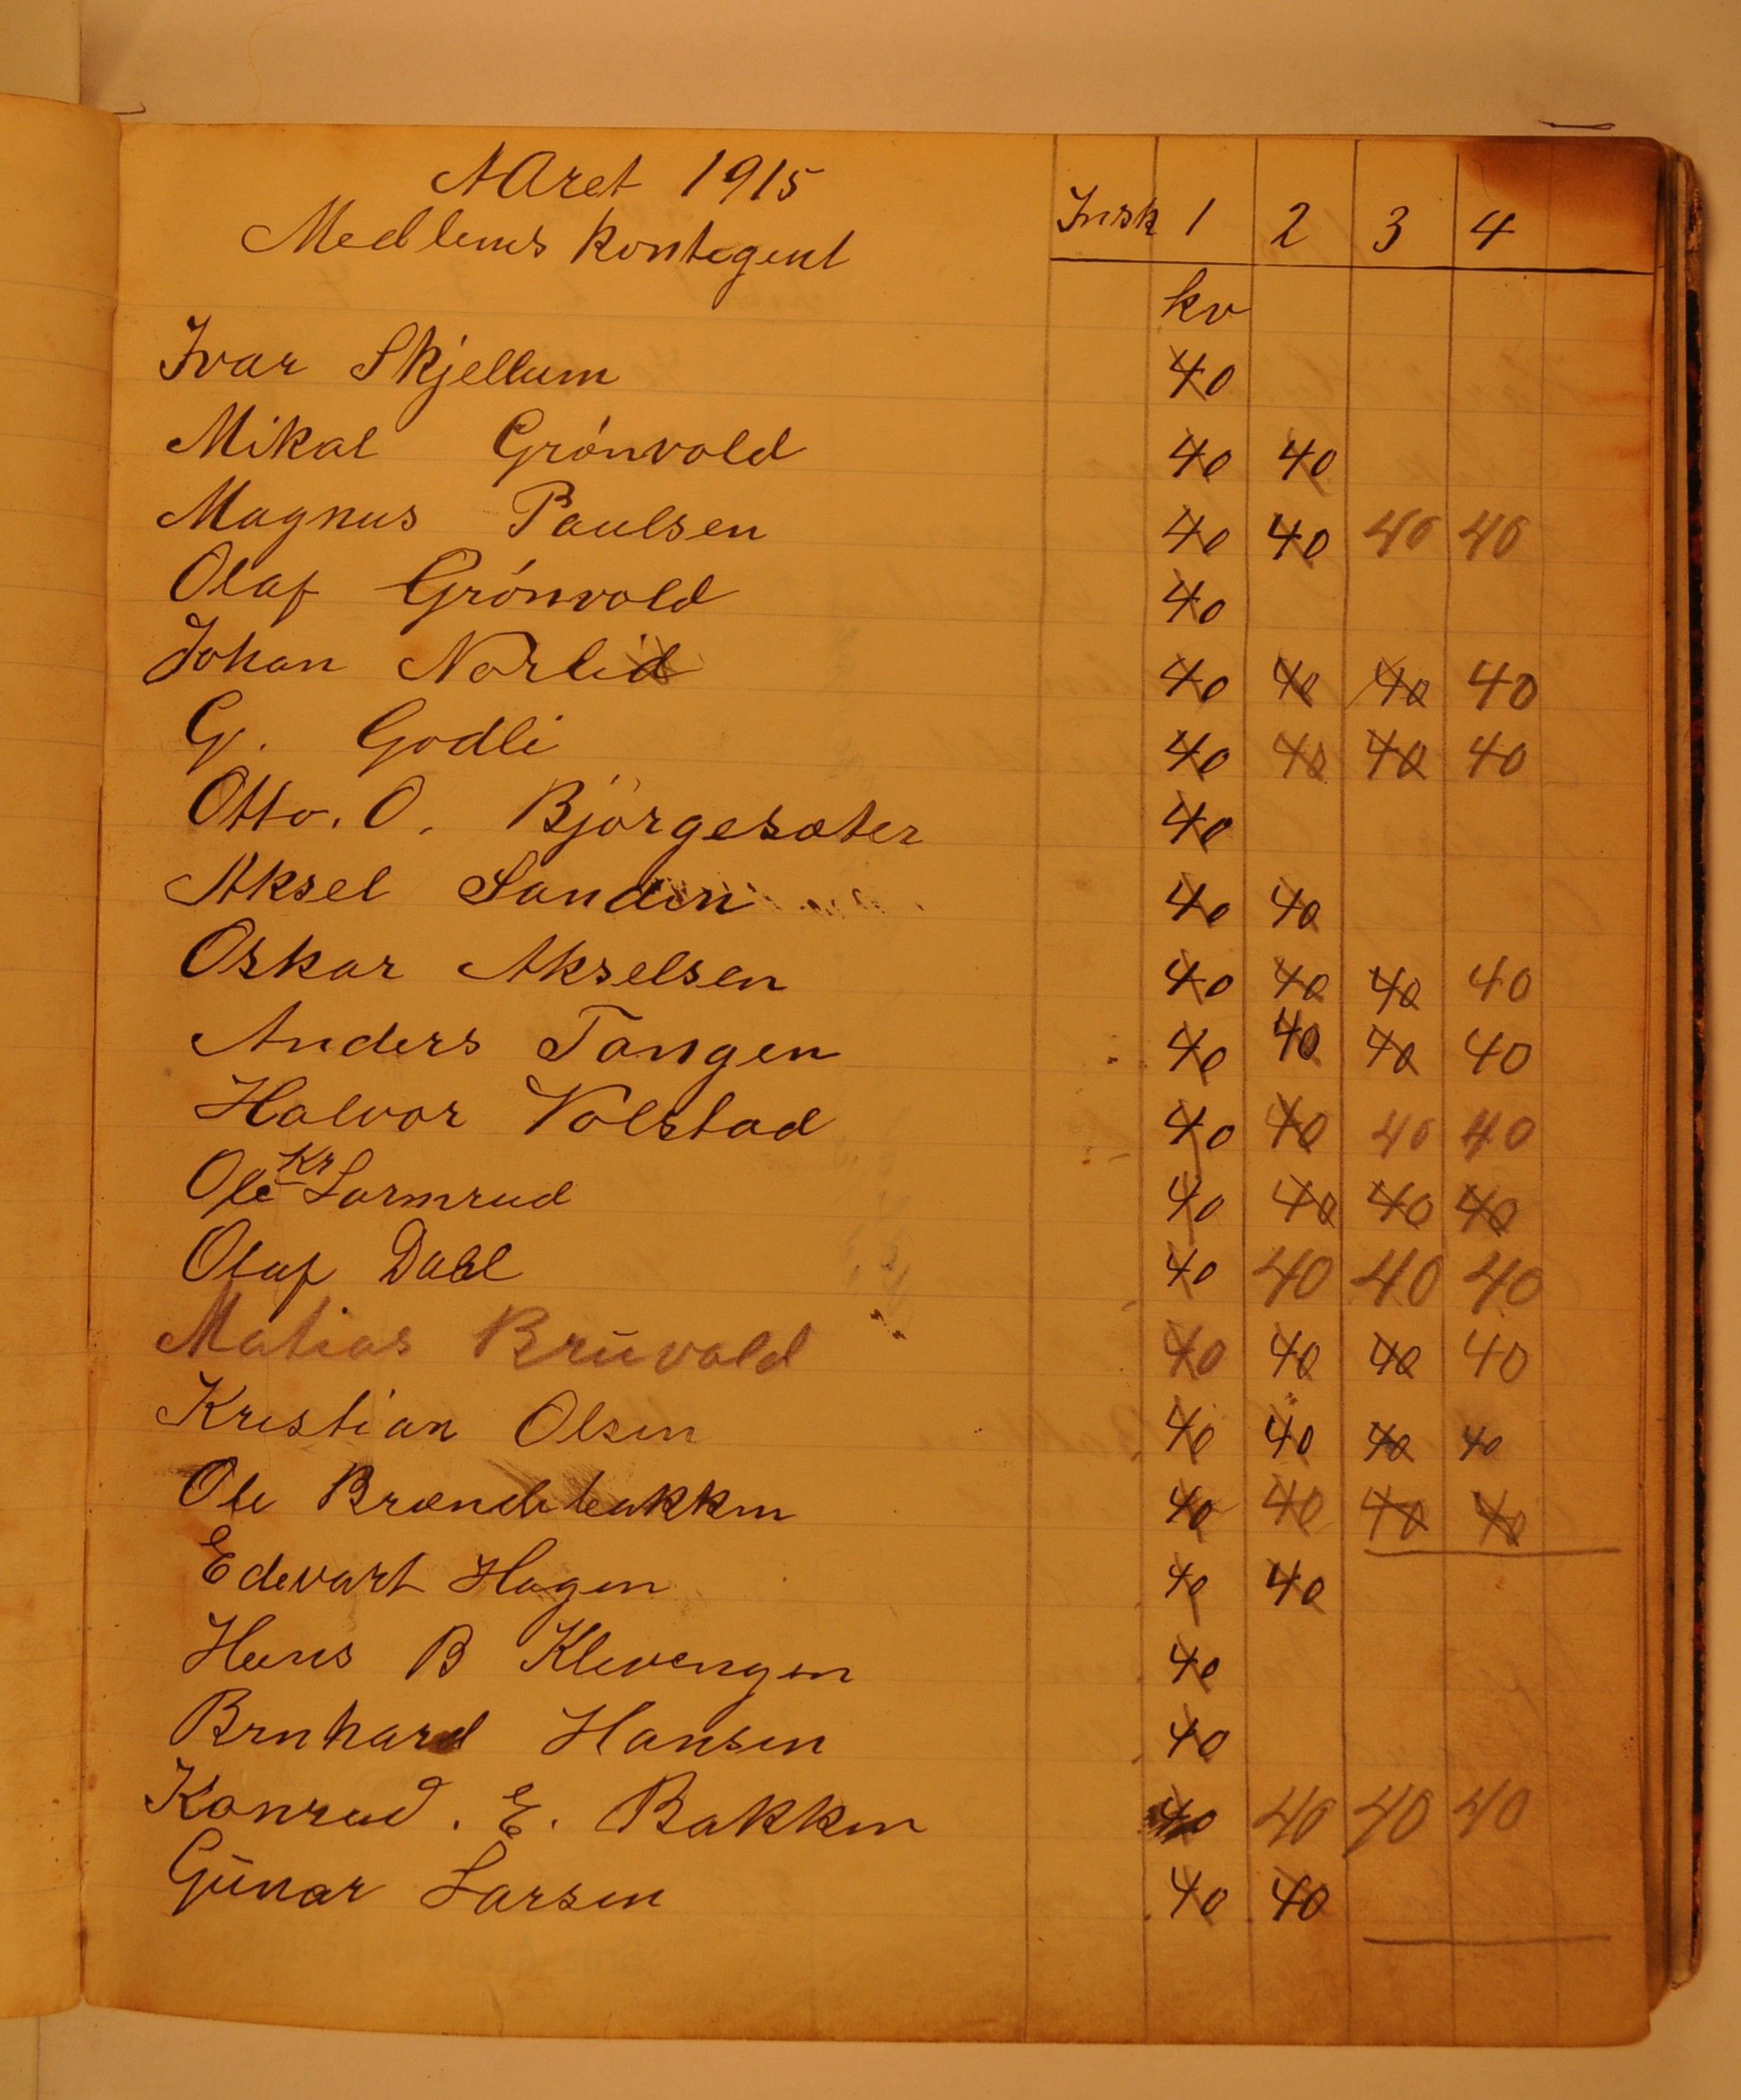 AAret 1915
Medlems kontegent Insk 1 2 3 4
kv
Ivar Skjellum 40
Mikal Grónvold 40 40
Magnus Paulsen 40 40 40 40
Olaf Grónvold 40
Johan Norlid 40 40 40 40
G. Godli 40 40 40 40
Otto. O. Bjørgesæter 40
Aksel Sanden 40 40
Oskar Akselsen 40 40 40 40
Anders Tangen 40 40 40 40
Halvor Volstad 40 40 40 40
Ole Kr Larmrud 40 40 40 40
Olaf Dahl 40 40 40 40
Matias Brūvold 40 40 40 40
Kristian Olsen 40 40 40 40
Ole Brændebakken 40 40 40 40
Edevart Hagen 40 40
Hans B Klevengen 40
Brnhard Hansen 40
Konrad. E. Bakken 40 40 40 40
Gūnar Larsen 40 40